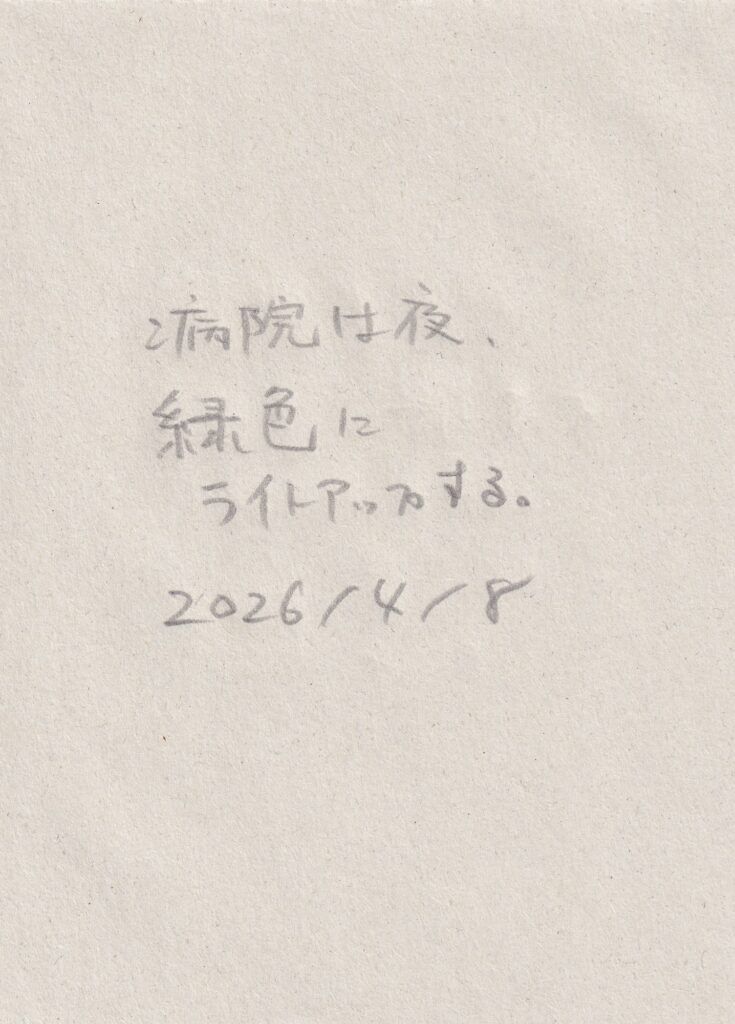 病院は夜、
緑色に
ライトアップする。
2026/4/8